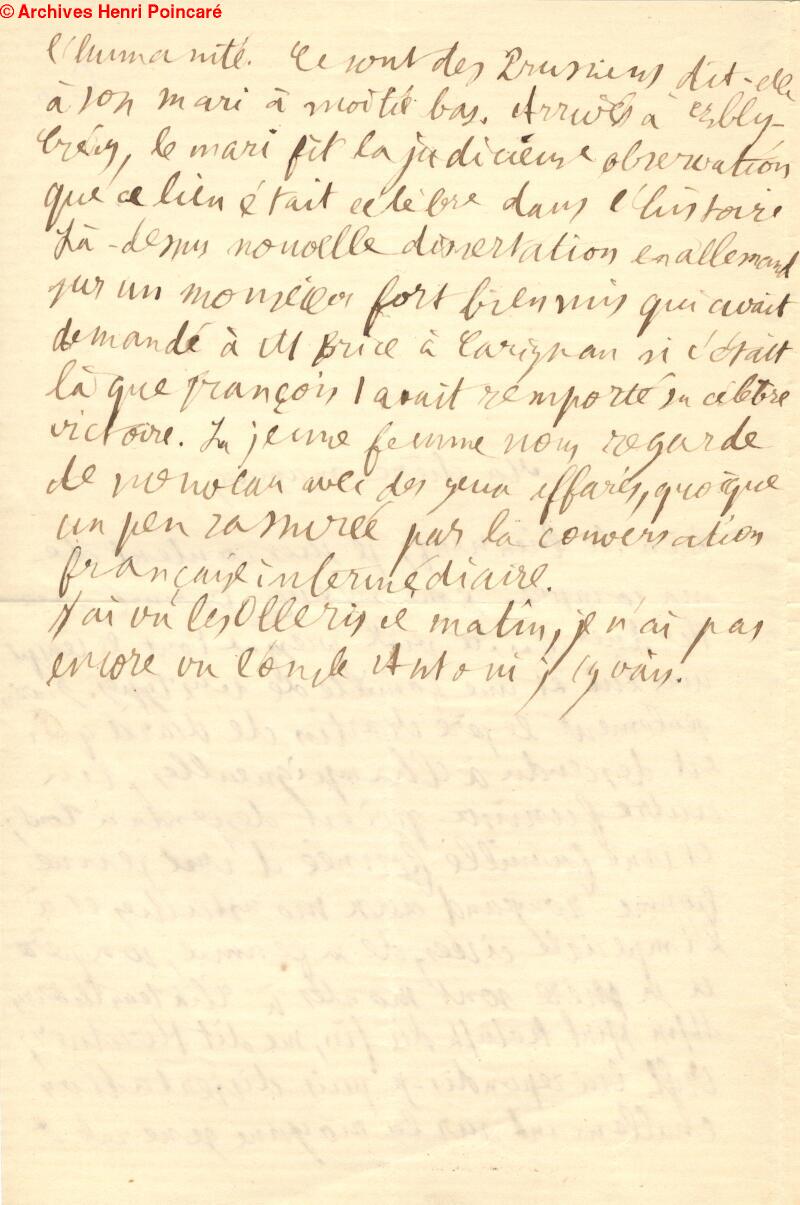 © Archives Henri Poincaré
l'humanité. Ce sont des Prussiens dit-elle
à son mari à moitié bas. Arrivés à Esbly-
Crécy, le mari fit la judicieuse observation
que ce lieu était célèbre dans l'histoire
Là-dessus nouvelle dissertation en allemand
sur un monsieur fort bien mis qui avait
demandé à M Brice à Carignan si c'était
là que françois I avait remporté sa célèbre
victoire. La jeune femme nous regarde
de nouveau avec des yeux effarés, quoique
un peu rassurée par la conversation
française intermédiaire.
J'ai vu les Olleris ce matin, je n'ai pas
encore vu l'oncle Antoni j'y vais.